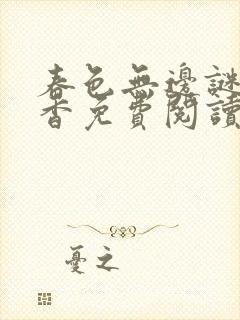 春色無邊謎
香免費閱讀
憂之